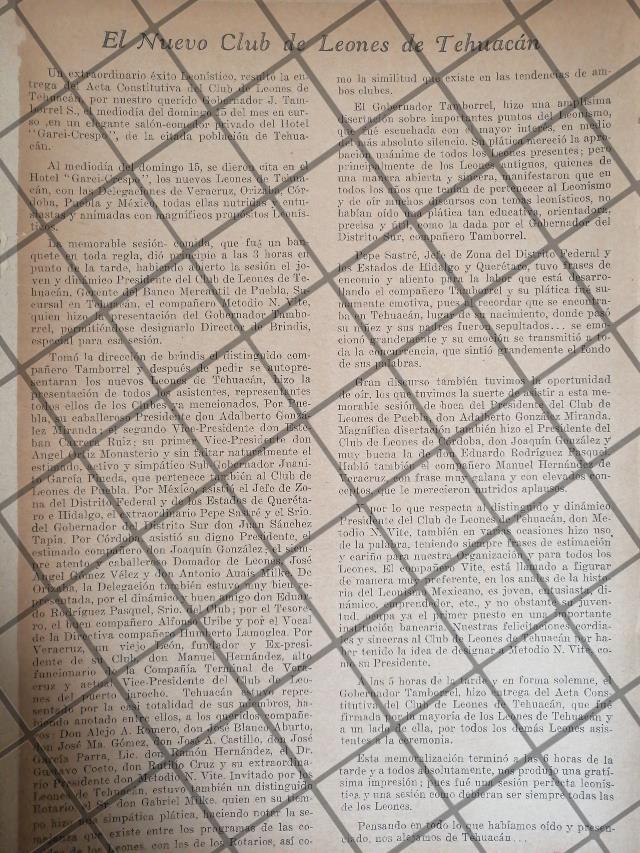 El Nuevo Club de Leones de Tehuacán
Un extraordinario éxito Leonístico, resultó la en-
trega del Acta Constitutiva del Club de Leones de
Tehuacán, por nuestro querido Gobernador J. Tam-
borrel S., a mediodía del domingo del mes en cur-
so en un elegante salón-comedor privado del Hotel
"Garci-Crespo", de la citada población de Tehua-
cán.
Al mediodía del domingo 15, se dieron cita en el
Hotel "Garci-Crespo", los nuevos Leones de Tehua-
cán, con las Delegaciones de Veracruz, Orizaba, Cór-
doba, Puebla y México, todas ellas nutridas y entu-
siastas y animadas con magníficos propósitos Leonís-
ticos.
La memorable sesión-comida, que fué un ban-
quete en toda regla, dió principio a las 3 horas en
punto de la tarde, habiendo abierto la sesión el jo-
ven y dinámico Presidente del Club de Leones de Te-
huacán, Gerente del Banco Mercantil de Puebla, Su-
cursal en Tehuacán, el compañero Metodio N. Vite,
quien hizo la presentación del Gobernador Tambo-
rrel, permitiéndose designarlo Director de Brindis,
especial para esa sesión.
Tomó la dirección de brindis el distinguido com-
pañero Tamborrel y después de pedir se autopre-
sentaran los nuevos Leones de Tehuacán, hizo la
presentación de todos los asistentes, representantes
todos ellos de los Clubes ya mencionados. Por Pue-
bla, su caballeroso Presidente don Adalberto Gonzá-
lez Miranda; el segundo Vice-Presidente don Este-
ban Carrera Ruiz; su primer Vice-Presidente don
Angel Ruiz Monasterio y sin faltar naturalmente el
estimado, activo y simpático Sub-Gobernador Juani-
to García Pineda, que pertenece también al Club de
Leones de Puebla. Por México, asistió el Jefe de Zo-
na del Distrito Federal y de los Estados de Queréta-
ro e Hidalgo, el extraordinario Pepe Sastré y el Srio.
del Gobernador del Distrito Sur don Juan Sánchez
Tapia. Por Córdoba asistió su digno Presidente, el
estimado compañero don Joaquín González; el siem-
pre atento y caballeroso Domador de Leones, José
Angel Gómez Vélez y don Antonio Anais Milke. De
Orizaba, la Delegación también estuvo muy bien re-
presentada, por el dinámico y buen amigo don Eduar-
do Rodríguez Pasquel, Srio. del Club; por el Tesore-
ro, el buen compañero Alfonso Uribe y por el Vocal
de la Directiva compañero Humberto Lamoglea. Por
Veracruz, un viejo León, fundador y Ex-presi-
dente de su Club, don Manuel Hernández, alto
funcionario de la Compañía Terminal de Vera-
cruz y actual Vice-Presidente del Club de Leo-
nes del puerto jarocho. Tehuacán estuvo repre-
sentado por la casi totalidad de sus miembros, ha-
biendo anotado entre ellos, a los queridos compañe-
ros: Don Alejo A. Romero, don José Blanco Aburto,
don José Ma. Gómez, don José A. Castillo, don José
García Parra, Lic. don Ramón Hernández, el Dr.
Gustavo Coeto, don Basilio Cruz y su extraordina-
rio Presidente don Metodio N. Vite. Invitado por los
Leones de Tehuacán, estuvo también un distinguido
Rotario, el Sr. don Gabriel Milke, quien en su tiem-
po hizo una simpática plática, haciendo notar la se-
mejanza que existe entre los programas de las co-
midas de Leones, con los de los Rotarios, así co-
mo la similitud que existe en las tendencias de am-
bos clubes.
El Gobernador Tamborrel, hizo una amplísima
disertación sobre importantes puntos del Leonismo,
que fué escuchada con el mayor interés, en medio
del más absoluto silencio. Su plática mereció la apro-
bación unánime de todos los Leones presentes; pero
principalmente de los Leones antiguos, quienes de
una manera abierta y sincera, manifestaron que en
todos los años que tenían de pertenecer al Leonismo
y de oír muchos discursos con temas leonísticos, no
habían oído una plática tan educativa, orientadora,
precisa y útil, como la dada por el Gobernador del
Distrito Sur, compañero Tamborrel.
Pepe Sastré, Jefe de Zona del Distrito Federal y
los Estados de Hidalgo y Querétaro, tuvo frases de
encomio y aliento para la labor que está desarro-
llando el compañero Tamborrel y su plática fué su-
mamente emotiva, pues al recordar que se encontra-
ba en Tehuacán, lugar de su nacimiento, donde pasó
su niñez y sus padres fueron sepultados... se emo-
cionó grandemente y su emoción se transmitió a to-
da la concurrencia, que sintió grandemente el fondo
de sus palabras.
Gran discurso también tuvimos la oportunidad
de oír, los que tuvimos la suerte de asistir a esta me-
morable sesión, de boca del Presidente del Club de
Leones de Puebla, don Adalberto González Miranda.
Magnífica disertación también hizo el Presidente del
Club de Leones de Córdoba, don Joaquín González y
muy buena la de don Eduardo Rodríguez Pasquel.
Habló también el compañero Manuel Hernández de
Veracruz, con frase muy galana y con elevados con-
ceptos, que le merecieron nutridos aplausos.
Y por lo que respecta al distinguido y dinámico
Presidente del Club de Leones de Tehuacán, don Me-
todio N. Vite, también en varias ocasiones hizo uso
de la palabra, teniendo siempre frases de estimación
y cariño para nuestra Organización y para todos los
Leones. El compañero Vite, está llamado a figurar
de manera muy preferente, en los anales de la histo-
ria del Leonismo Mexicano, es joven, entusiasta, di-
námico, emprendedor, etc., y no obstante su juven-
tud, ocupa ya el primer puesto en una importante
institución bancaria. Nuestras felicitaciones cordia-
les y sinceras al Club de Leones de Tehuacán por ha-
ber tenido la idea de designar a Metodio N. Vite, co-
mo su Presidente.
A las 5 horas de la tarde y en forma solemne, el
Gobernador Tamborrel, hizo entrega del Acta Cons-
titutiva del Club de Leones de Tehuacán, que fué
firmada por la mayoría de los Leones de Tehuacán y
a un lado de ella, por todos los demás Leones asis-
tentes a la ceremonia.
Esta memorable sesión terminó a las 6 horas de la
tarde y a todos absolutamente, nos produjo una gratí-
sima impresión; pues fué una sesión perfecta leonís-
tica y una sesión como debieran ser siempre todas las
de los Leones.
Pensando en todo lo que habíamos oído y presen-
ciado, nos alejamos de Tehuacán...